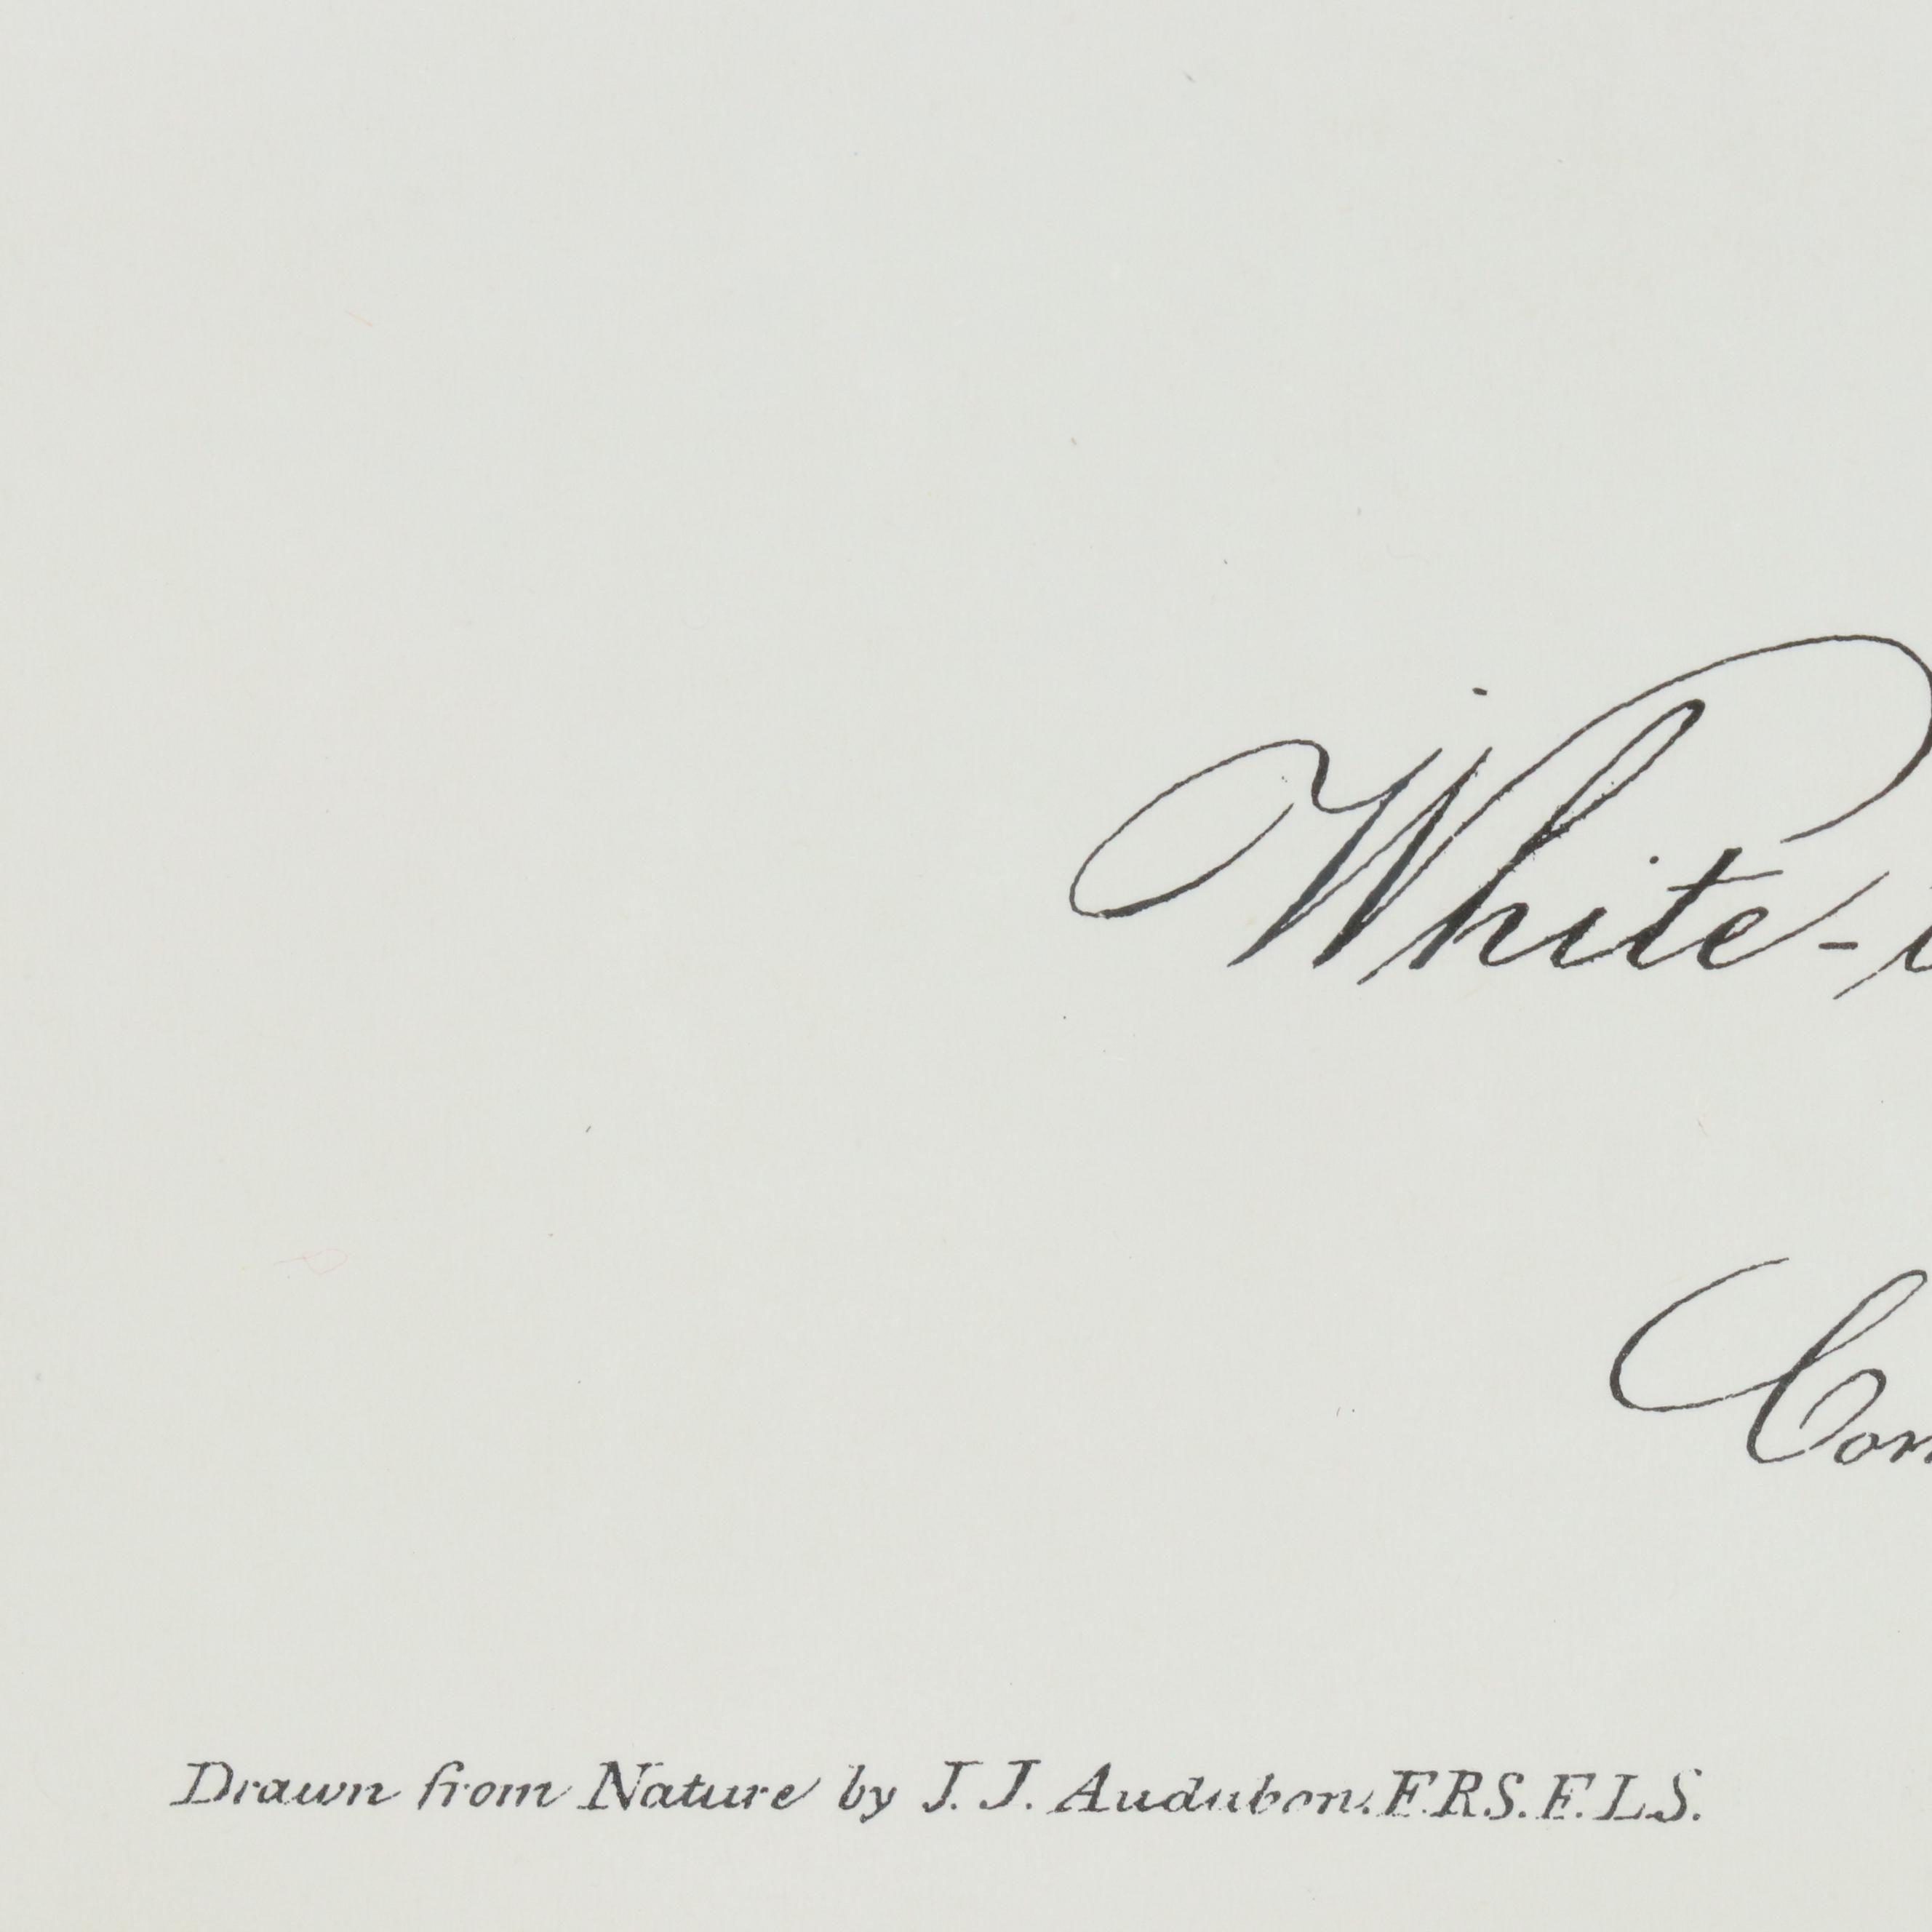 White-
Com
Drawn from Nature by J. J. Audubon. F.R.S. F.L.S.